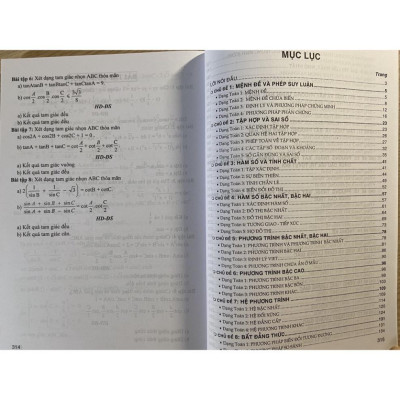 Bài tập 6: Xét dạng tam giác nhọn ABC thỏa mãn
a) tanAtanB + tanBtanC + tanCtanA = 9.
b) cos A/2 cos B/2 cos C/2 ≤ 3√3/8
HD-ĐS
a) Kết quả tam giác đều
b) Kết quả tam giác đều
Bài tập 7: Xét dạng tam giác nhọn ABC thỏa mãn
a) cos2A + cos2B + cos2C + 1 = 0
HD-ĐS
a) Kết quả tam giác vuông
b) Kết quả tam giác đều
Bài tập 8: Xét dạng tam giác nhọn ABC thỏa mãn
HD-ĐS
a) Kết quả tam giác đều
b) Kết quả tam giác cân
314
MỤC LỤC
Trang
LỜI NÓI ĐẦU
CHỦ ĐỀ 1: MỆNH ĐỀ VÀ PHÉP SUY LUẬN
+ Dạng Toán 1: MỆNH ĐỀ
+ Dạng Toán 2: MỆNH ĐỀ CHỨA BIẾN
+ Dạng Toán 3: ĐỊNH LÝ VÀ PHƯƠNG PHÁP CHỨNG MINH
+ Dạng Toán 4: PHƯƠNG PHÁP PHẢN CHỨNG
CHỦ ĐỀ 2: TẬP HỢP VÀ SAI SỐ
+ Dạng Toán 1: XÁC ĐỊNH TẬP HỢP
+ Dạng Toán 3: PHÉP TOÁN VỀ TẬP HỢP
+ Dạng Toán 4: CÁC TẬP SỐ THỰC VÀ KHOẢNG
+ Dạng Toán 5: SỐ GẦN ĐÚNG VÀ SAI SỐ
CHỦ ĐỀ 3: HÀM SỐ VÀ TÍNH CHẤT
+ Dạng Toán 1: TẬP XÁC ĐỊNH
+ Dạng Toán 2: SỰ BIẾN THIÊN
+ Dạng Toán 3: TÍNH CHẴN LẺ
+ Dạng Toán 4: BIẾN ĐỔI ĐỒ THỊ
CHỦ ĐỀ 4: HÀM SỐ BẬC NHẤT, BẬC HAI
+ Dạng Toán 1: XÁC ĐỊNH HÀM SỐ
+ Dạng Toán 2: ĐỒ THỊ BẬC NHẤT
+ Dạng Toán 3: ĐỒ THỊ BẬC HAI
+ Dạng Toán 4: TƯƠNG GIAO, TIẾP XÚC
CHỦ ĐỀ 5: PHƯƠNG TRÌNH BẬC NHẤT, BẬC HAI
+ Dạng Toán 1: PHƯƠNG TRÌNH VÀ PHƯƠNG TRÌNH BẬC NHẤT
+ Dạng Toán 2: PHƯƠNG TRÌNH BẬC HAI
+ Dạng Toán 3: ĐỊNH LÝ VIET
+ Dạng Toán 4: PHƯƠNG TRÌNH CHỨA ẨN Ở MẪU
CHỦ ĐỀ 6: PHƯƠNG TRÌNH BẬC CAO
+ Dạng Toán 1: PHƯƠNG TRÌNH BẬC BA
+ Dạng Toán 2: PHƯƠNG TRÌNH BẬC BỐN
+ Dạng Toán 3: PHƯƠNG TRÌNH KHÁC
CHỦ ĐỀ 7: HỆ PHƯƠNG TRÌNH
+ Dạng Toán 1: HỆ BẬC NHẤT
+ Dạng Toán 2: HỆ ĐỐI XỨNG
+ Dạng Toán 3: HỆ ĐẲNG CẤP
+ Dạng Toán 4: HỆ PHƯƠNG TRÌNH KHÁC
CHỦ ĐỀ 8: BẤT ĐẲNG THỨC
+ Dạng Toán 1: PHƯƠNG PHÁP BIẾN ĐỔI TƯƠNG ĐƯƠNG
+ Dạng Toán 2: PHƯƠNG PHÁP SO SÁNH
315